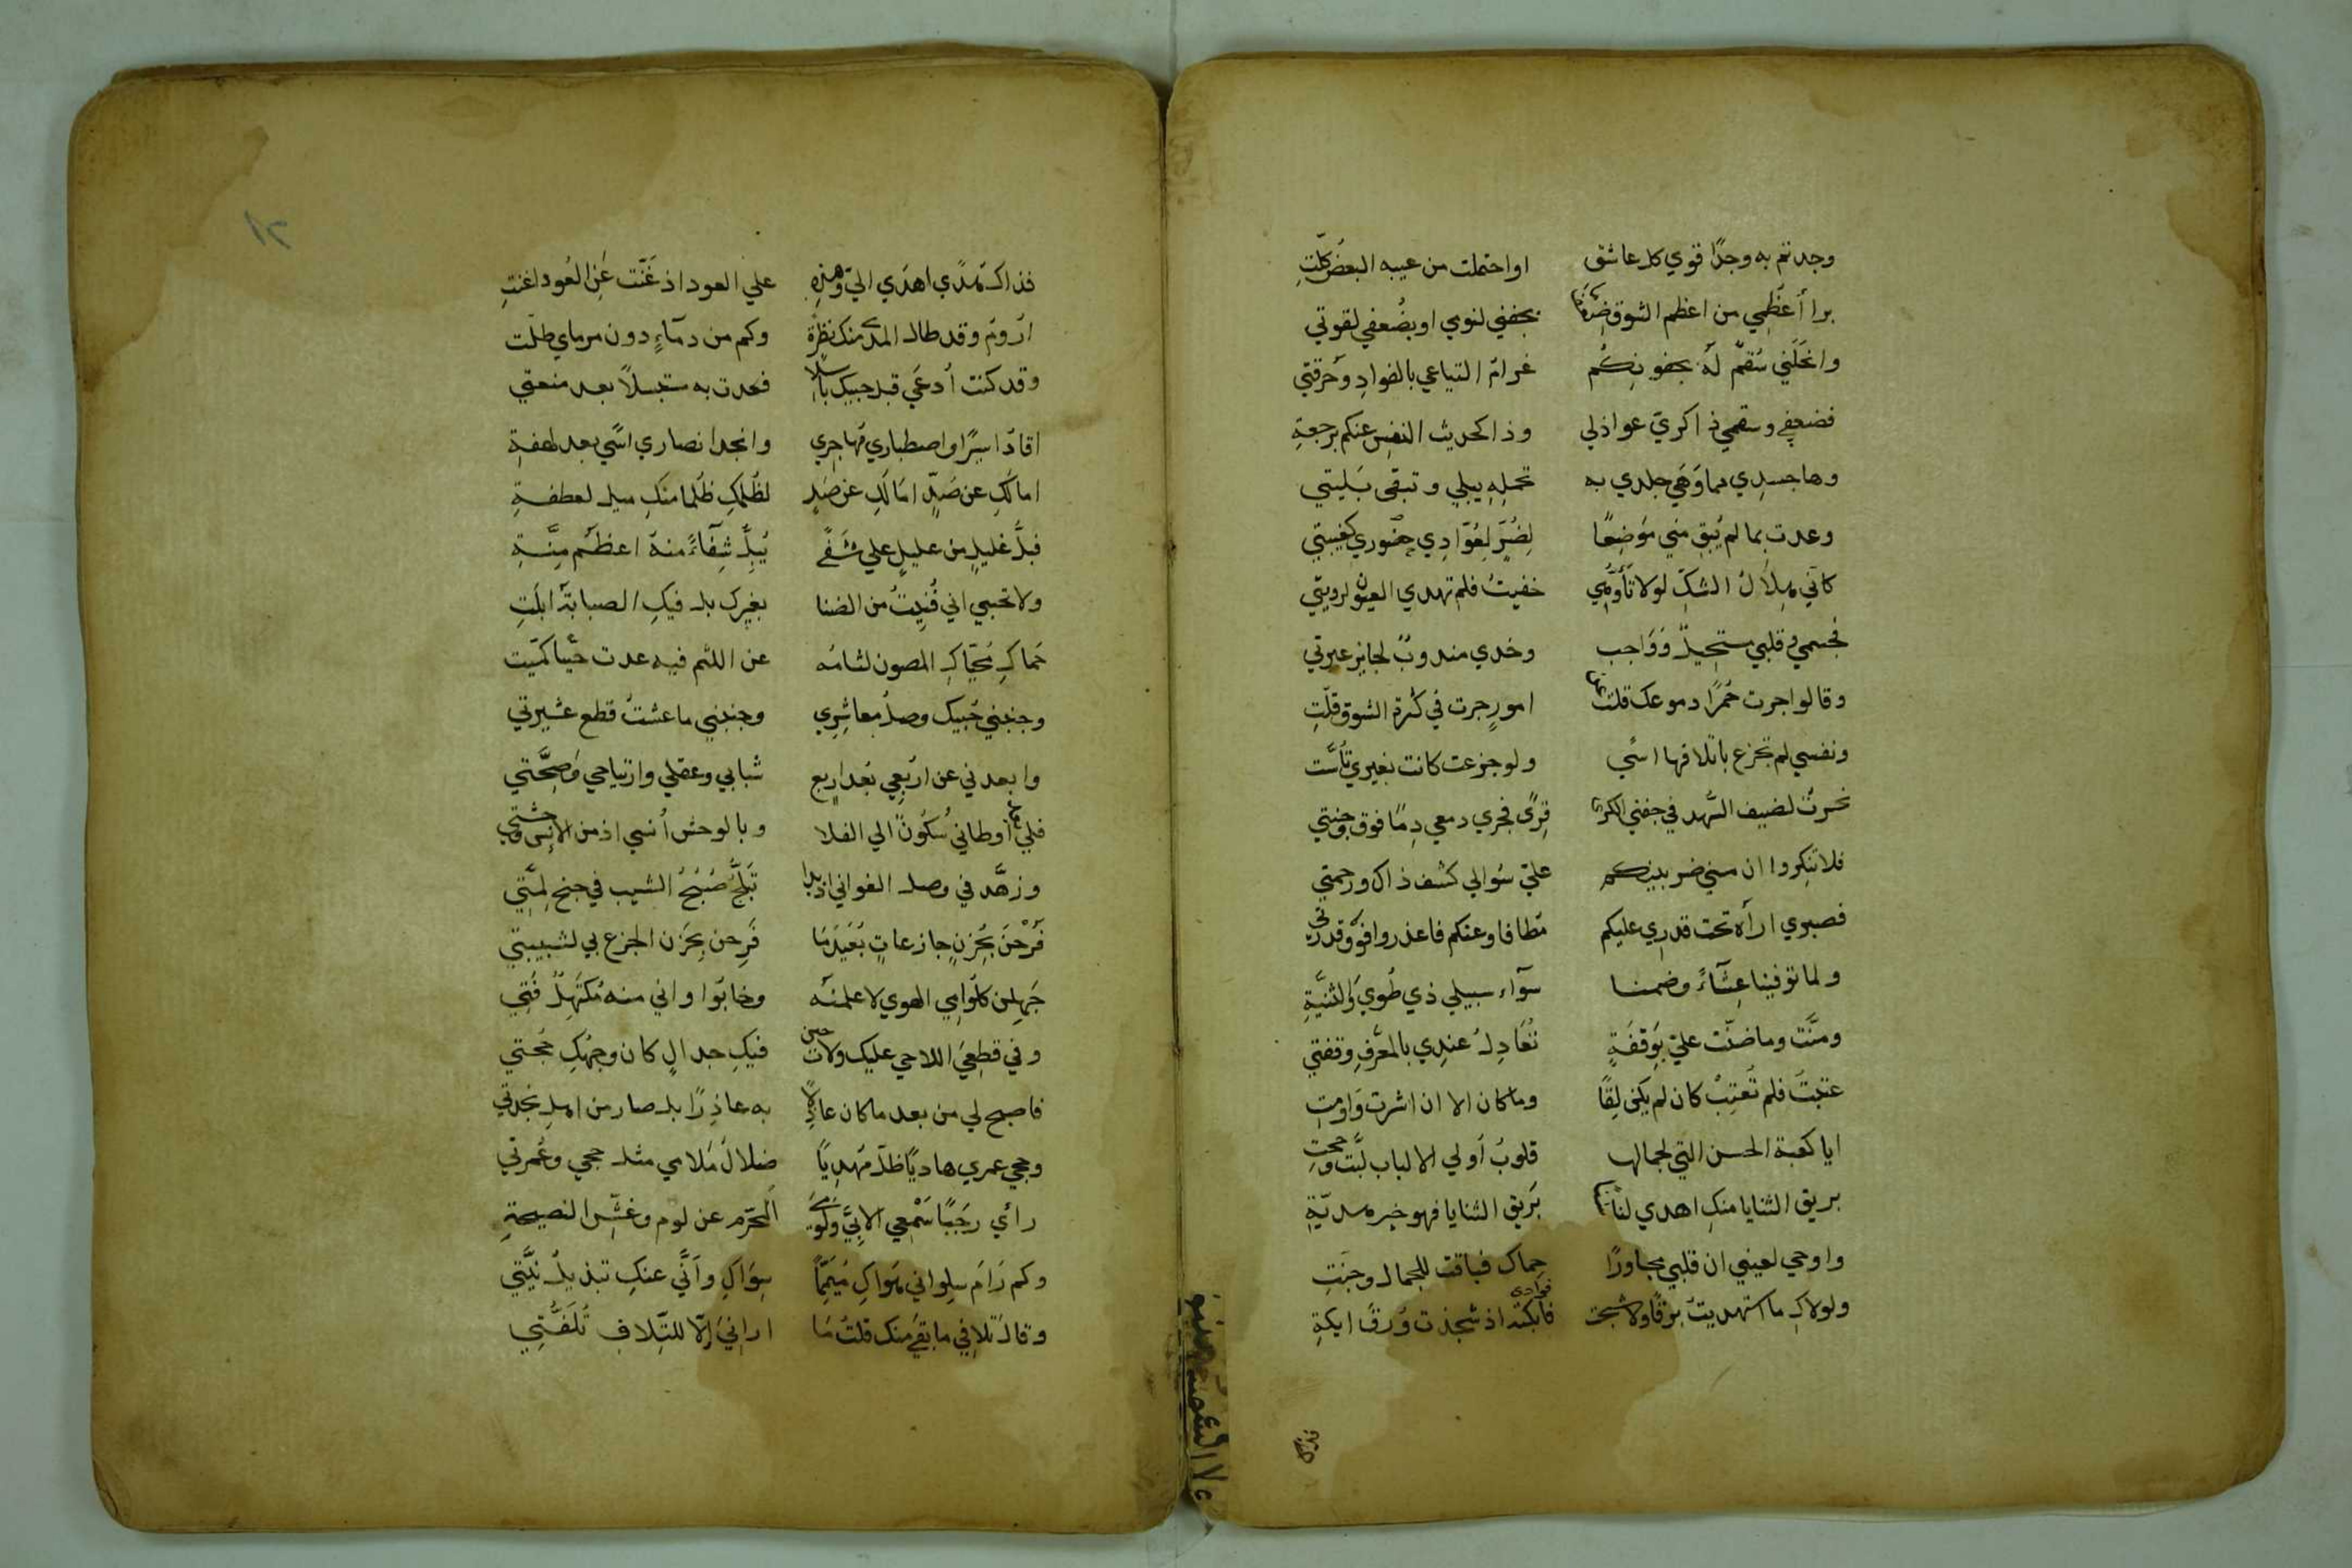 وجدتم به وجدًا قوي كل عاشق او احتملت من عيبه البعض كلّتِ
برا أعظُمي من اعظم الشوق ضعف ما بجفني لنومي او بضُعفي لقوتي
وانحَلَني سُقمٌ لَهُ بجفونكُم غرامُ التياعي بالفوادِ وحُرقتي
فضعفي وسقمي ذا كرَي عواذلي وذاك حديث النفس عنكم برجعةِ
وها جسدي مما وَهَي جلدي به تحمله يبلي وتبقى بَليتي
وعدت بما لم يُبقِ مني مَوضِعًا لِضُرٍّ لعُوّادِي حضوري كغيبتي
كاني هِلالُ الشكِّ لولا تأَوُّهي خفيتُ فلم تهدي العيون لرويتي
فجسمي وقلبي مستحيلٌ وَوَاجب وخدي مندوبٌ لجايز عبرتي
وقالوا اجرت حُمرًا دموعك قلت عن امورٍ جرت في كثرة الشوق قلّتِ
ونفسي لم تجزع باتلافها اسًي ولو جزعت كانت بغيري تأسّت
نحرتُ لضيف السُّهد في جفني الكرا قِرًى فجري دمعي دِمًا فوق وجنتي
فلا تنكروا ان مسني ضر بينكم عليّ سُوالي كشف ذاك ورحمتي
فصبري اراه تحت قدري عليكم مُطاقا وعنكم فاعذروا فوق قدرتي
ولما توفينا عِشَاءً وضمنا سَوآء سبيلي ذي طُويً والثنيَّةِ
ومنَّت وما ضنّت عليّ بوَقفَةٍ تُعَادِلُ عندِي بالمعَرَّفِ وقفتي
عتبتُ فلم تُعتِبْ كان لم يكن لِقًا وما كان الا ان اشرت وَاومت
ايا كعبة الحسن التي لجمالها قلوبُ أولي الالباب لبَّت وحجتِ
بريق الثنايا منكِ اهدي لنا سنا بُرَيق الثنايا فهو خير هديّةِ
واوحي لعيني ان قلبي مجاورًا حِماكِ فتاقت للجمال وحنتِ
ولولاكِ ما استهديتُ برقًا ولا شجت فوادي فابكت اذ شجذت وُرقُ ايكةِ
فذاك هُدًي اهدَي اليّ وهذه علي العود اذ غَنّت عَنِ العُود اغنتِ
ارُومُ وقد طال المدي منك نظرةً وكم من دمآءٍ دون مرماي طلّت
وقد كنت أدعَي قبل حبيك باسلا فعدت به مستبسلاً بعد منعتي
اقادُ اسيرًا واصطباري مُهاجري وانجد انصاري اسًي بعد لهفةِ
اما لَكِ عن صَدٍّ امَالَكِ عن صَدٍ لظَلمكِ ظُلما منكِ ميل لعطفةِ
فبلُّ غليلٍ من عليلٍ علي شَفًي يُبِلُّ شِفآءً منهُ اعظَم مِنَّةِ
ولا تحسبي اني فُنِيتُ من الضنا بغيرك بل فيكِ الصبابة ابلَتِ
جَمالُكِ مُحيّاكِ المصون لثامُه عن اللثم فيه عدت حيًّا كميّت
وجنبني حُبيك وصل معاشِرِي وجنبني ما عشتُ قطع عشيرتي
وابعدني عن اربُعِي بُعد اربع شبابي وعقلي وارتياحي وَصِحَّتي
فلي بعد اوطاني سُكونٌ الي الفلا وبالوحش أنسي اذ من الانس وحشتي
وزهَّد في وصل الغواني اذ بدا تَبَلُّجُ صُبْحُ الشيب في جنح لِمَّتي
فَرُحْنَ بحُزنٍ جازعاتٍ بُعَيدَمَا فَرِحن بحَزن الجزع بي لشبيبتي
جَهِلن كَلُوَّامِي الهوي لا علمنَه وخابُوا واني منهُ مُكتَهِلٌ فَتِي
وفي قطعيَ اللاحي عليك ولات حين فيكِ جدالٍ كان وجهُكِ حُجتي
فاصبح لي من بعد ما كان عاذلا به عاذِرًا بل صار من اهلِ نجدتي
وحجي عمري هاديًا ظلّ مُهديًا ضلالُ مَلامي مثل حجي وعُمرتي
رأي رجَبًا سَمْعِي الابيَّ وَلَوْمِيَ المُحَرّم عن لوم وغشّ النصيحةِ
وكم رَامَ سِلواني هَوَاكِ مُيَمِّمًا سِوَاكِ وأَنَّى عنكِ تبديلُ نيَّتي
وقال تلافي ما بقي منك قلتُ مَا ارانيَ إلّا للتِّلافِ تَلَفُّتِي
فذاك